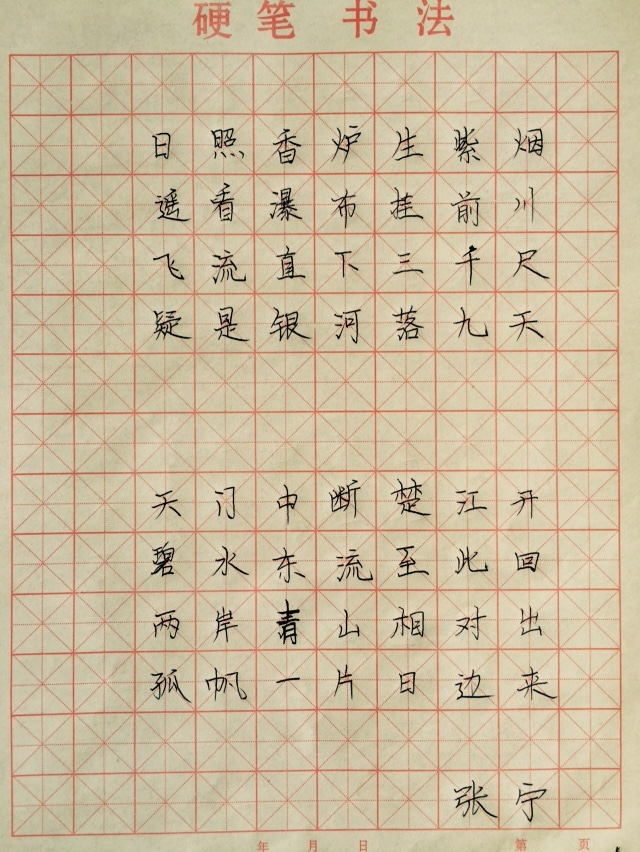 硬笔书法
日照香炉生紫烟
遥看瀑布挂前川
飞流直下三千尺
疑是银河落九天
天门中断楚江开
碧水东流至此回
两岸青山相对出
孤帆一片日边来
张宁
年 月 日 第 页